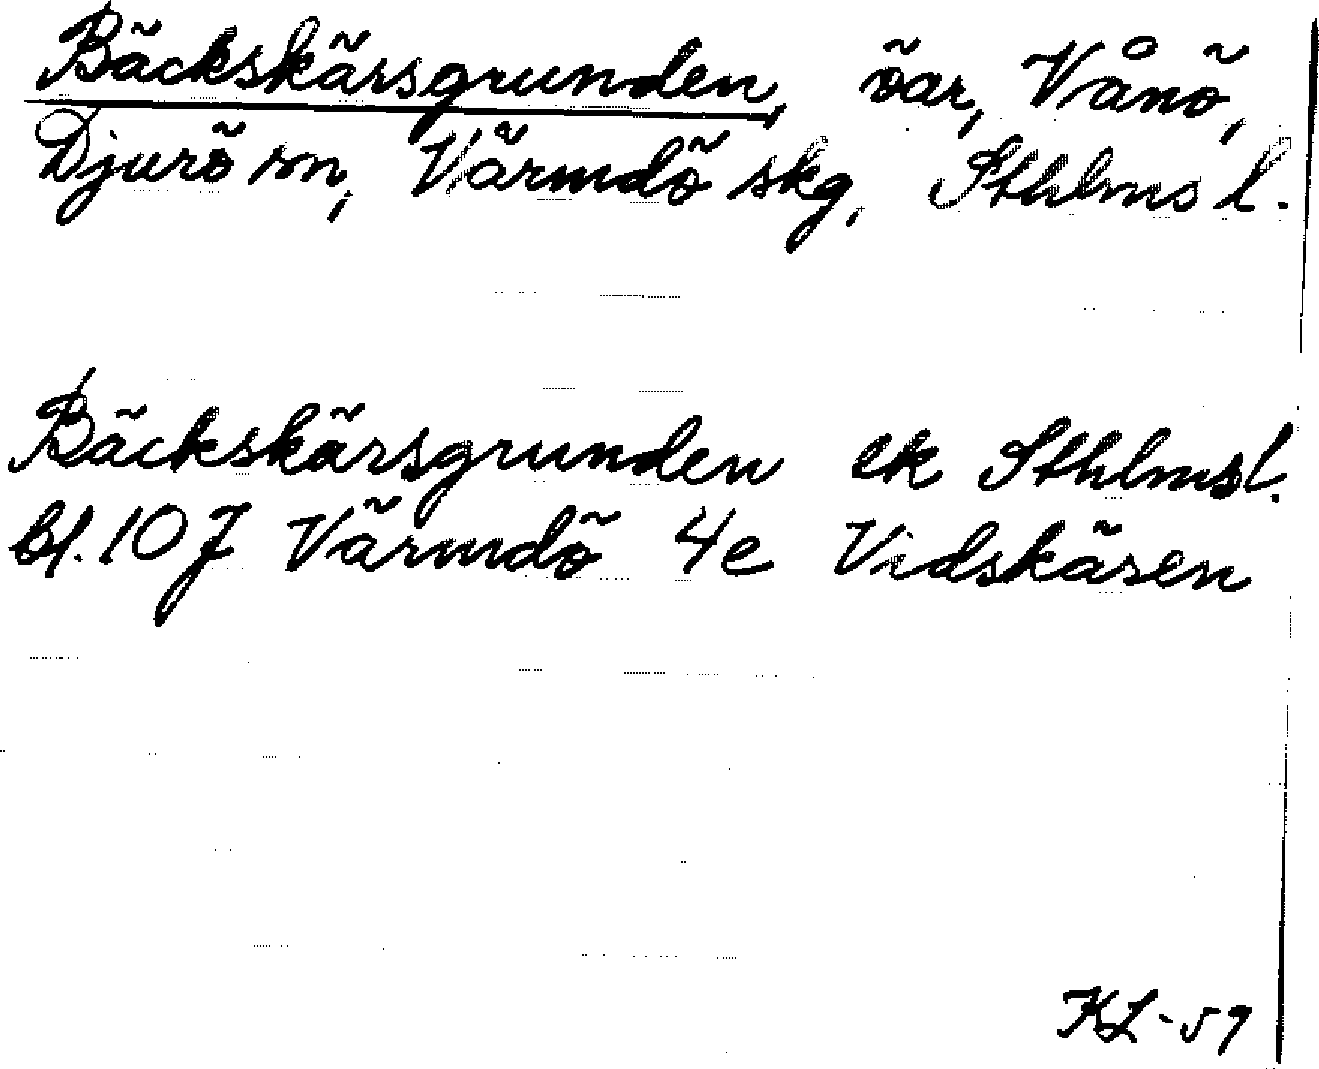 Bäckskärsgrunden, öar, Vånö,
Djurö sn, Värmdö skg, Sthlms l.
Bäckskärsgrunden ek Sthlms l.
bl. 10 J Värmdö 4e Vidskären
KL-59